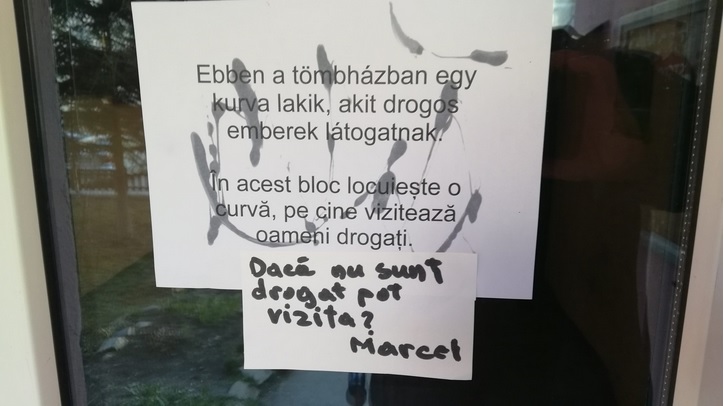 Ebben a tömbházban egy
kurva lakik, akit drogos
emberek látogatnak.
În acest bloc locuiește o
curvă, pe cine vizitează
oameni drogați.
Dacă nu sunt
drogat pot
vizita?
Marcel